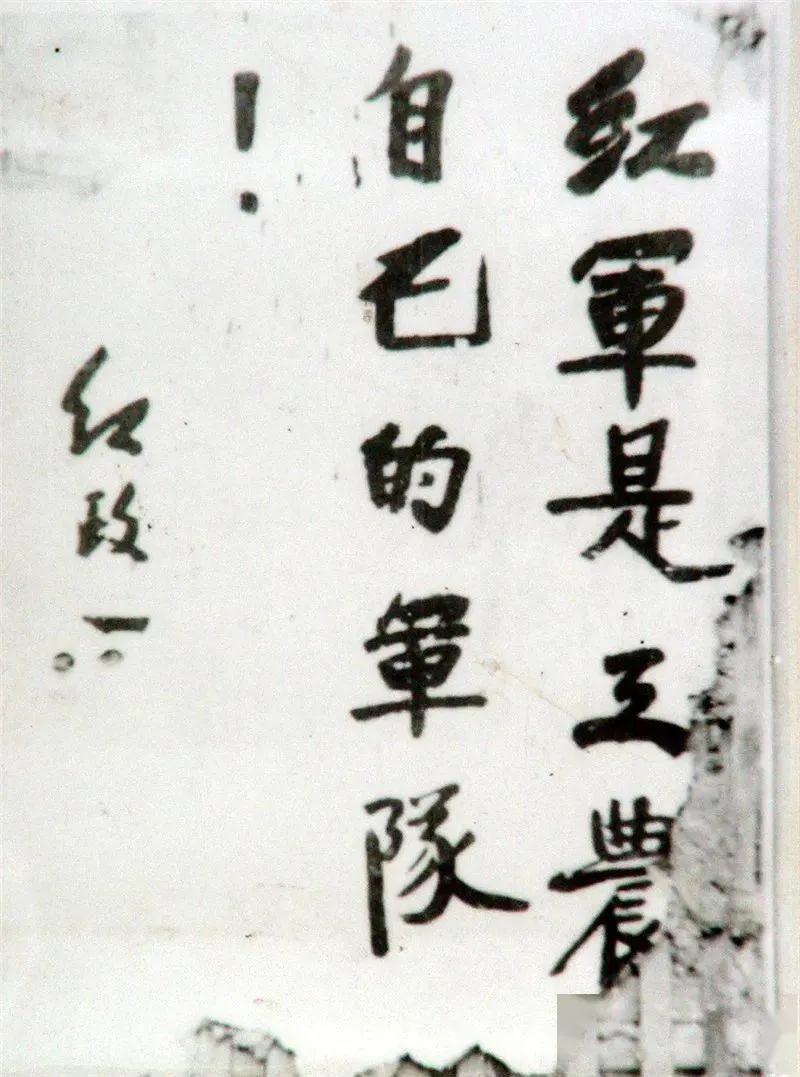 紅軍是工農
自己的軍隊
！
紅政一